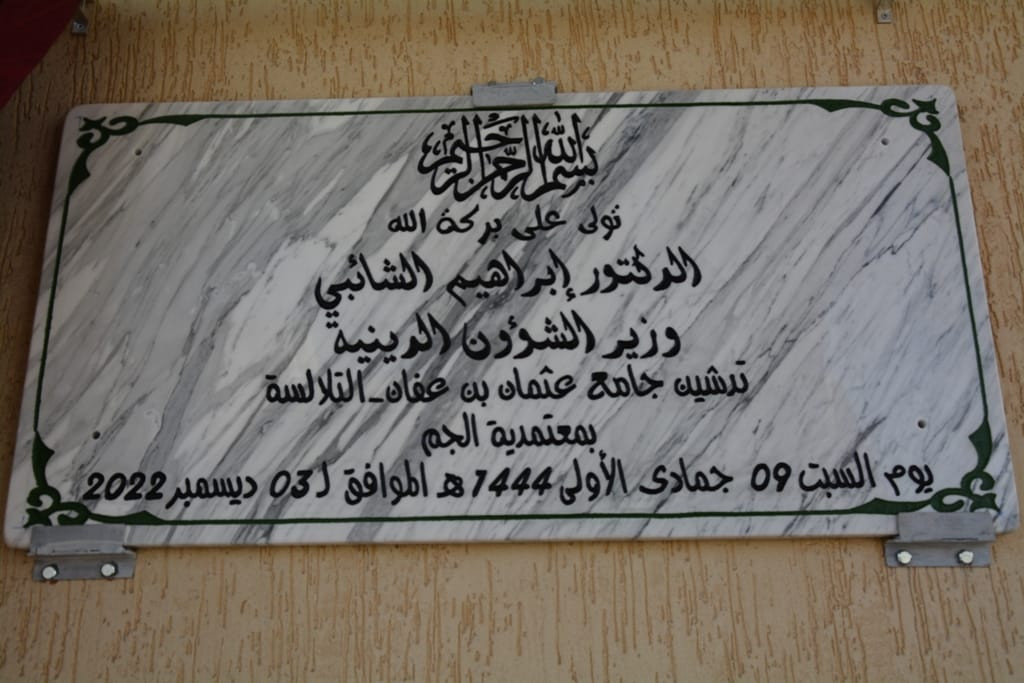 بسم الله الرحمن الرحيم
تولى على بركة الله
الدكتور إبراهيم الشائبي
وزير الشؤون الدينية
تدشين جامع عثمان بن عفان_التلالسة
بمعتمدية الجم
يوم السبت 09 جمادى الأولى 1444هـ الموافق لـ 03 ديسمبر 2022